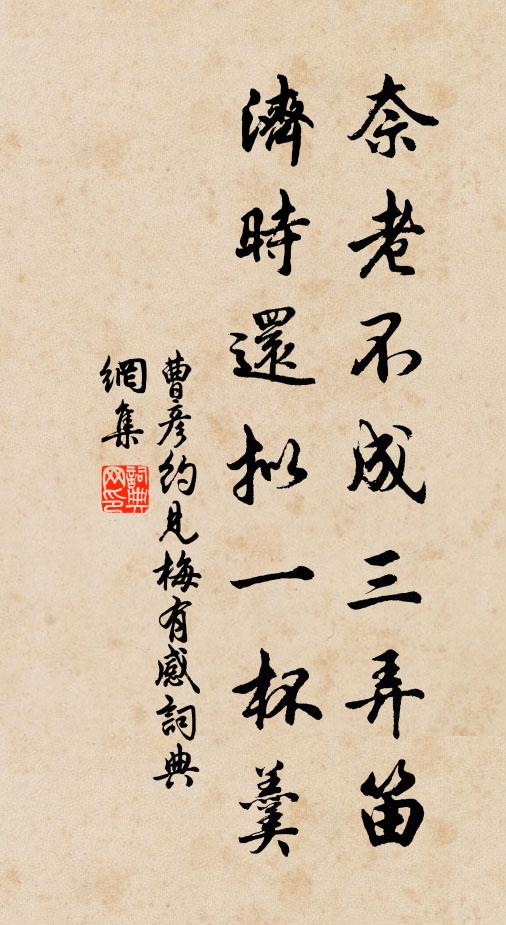 奈老不成三弄笛
濟時還擬一杯羹
曹彥約見梅有感詞典
網集
詞典網印